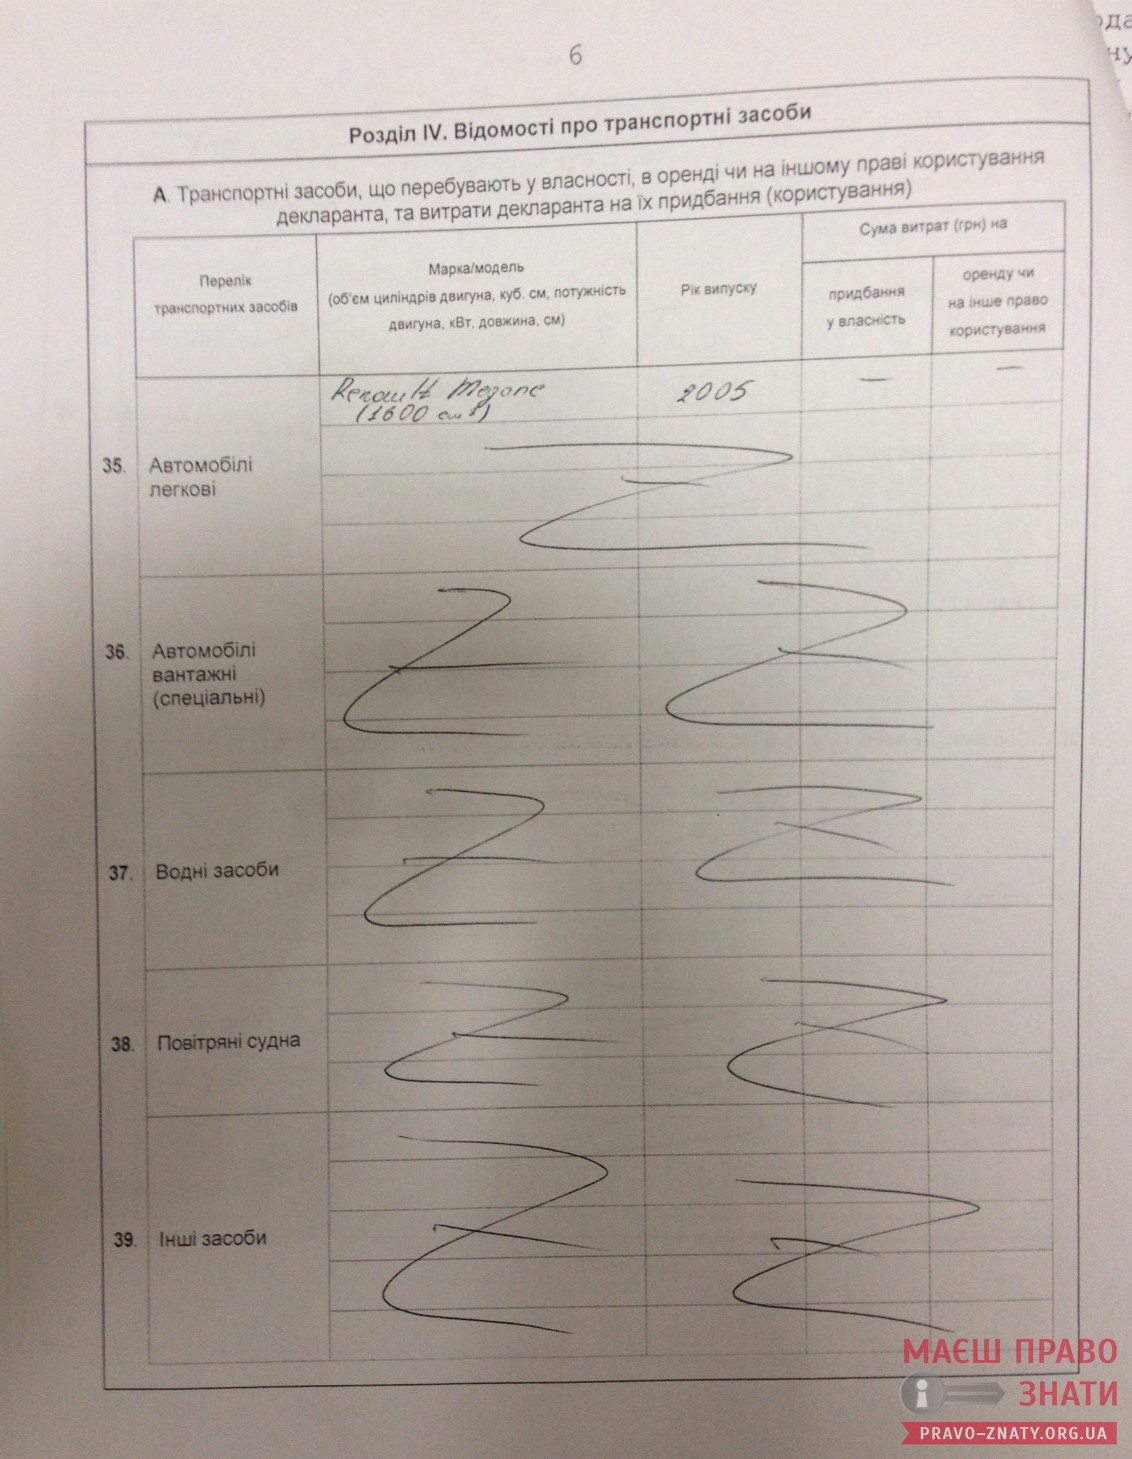 6
Розділ IV. Відомості про транспортні засоби
А. Транспортні засоби, що перебувають у власності, в оренді чи на іншому праві користування
декларанта, та витрати декларанта на їх придбання (користування)
Перелік
транспортних засобів
Марка/модель
(об'єм циліндрів двигуна, куб. см, потужність
двигуна, кВт, довжина, см)
Рік випуску
Сума витрат (грн) на
придбання
у власність
оренду чи
на інше право
користування
35. Автомобілі
легкові
Renault Megane
(1600 см³)
2005
—
—
36. Автомобілі
вантажні
(спеціальні)
37. Водні засоби
38. Повітряні судна
39. Інші засоби
МАЄШ ПРАВО
ЗНАТИ
PRAVO-ZNATY.ORG.UA